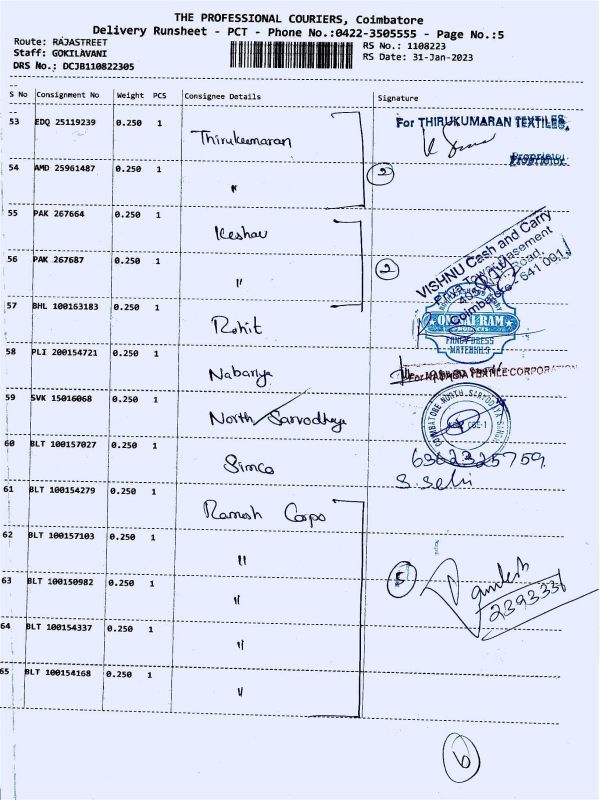 THE PROFESSIONAL COURIERS, Coimbatore
Delivery Runsheet - PCT - Phone No.:0422-3505555 - Page No.:5
Route: RAJASTREET
RS No.: 1108223
Staff: GOKILAVANI
RS Date: 31-Jan-2023
DRS No.: DCJB110822305
S No Consignment No Weight PCS Consignee Details Signature
53 EDQ 25119239 0.250 1 Thirukumaran
For THIRUKUMARAN TEXTILES,
Proprietor
54 AMD 25961487 0.250 1 "
2
55 PAK 267664 0.250 1 Keshav
56 PAK 267687 0.250 1 "
2
VISHNU Cash and Carry
Priya Tower Basement
Road,
Coimbatore - 641 001
57 BHL 100163183 0.250 1 Rohit
OM SAI RAM
FANCY DRESS
MATERIALS
58 PLI 200154721 0.250 1 Nabariya
59 SVK 15016068 0.250 1 North Sarvodhya
COIMBATORE NORTH SARVODAYA SANGH
CBE-1
60 BLT 100157027 0.250 1 Simco
6362325759
S. Selvi
61 BLT 100154279 0.250 1 Ramesh Corpo
62 BLT 100157103 0.250 1 "
63 BLT 100150982 0.250 1 "
5
2393336
64 BLT 100154337 0.250 1 "
65 BLT 100154168 0.250 1 "
6